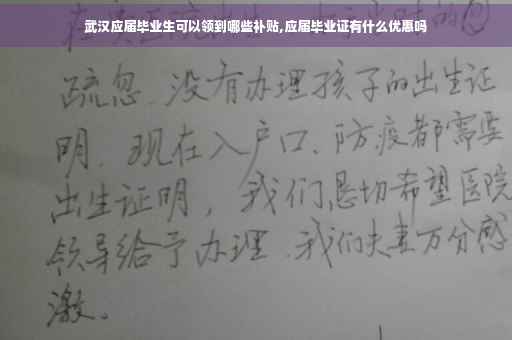 武汉应届毕业生可以领到哪些补贴,应届毕业证有什么优惠吗
疏忽.没有办理孩子的出生证
明.现在入户口、防疫都需要
出生证明，我们恳切希望医院
领导给予办理.我们夫妻万分感
激。